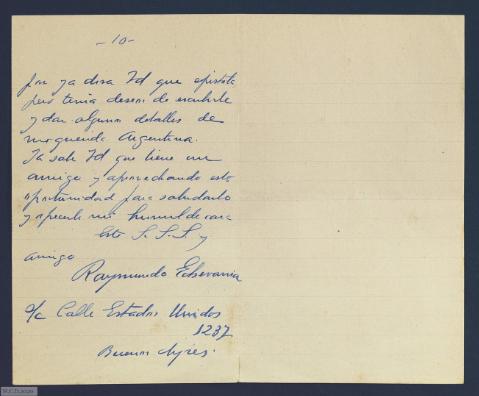 - 10 -
por ya dira Vd que epistola
pero tenia deseos de escribirle
y dar algunos detalles de
mi querida Argentina.
Ya sabe Vd que tiene un
amigo y aprovechando esta
oportunidad para saludarlo
y ofrecerle mi humilde casa
S. S. S. y
amigo
Raymundo Echevarria
a/c Calle Estados Unidos
1237
Buenos Ayres.